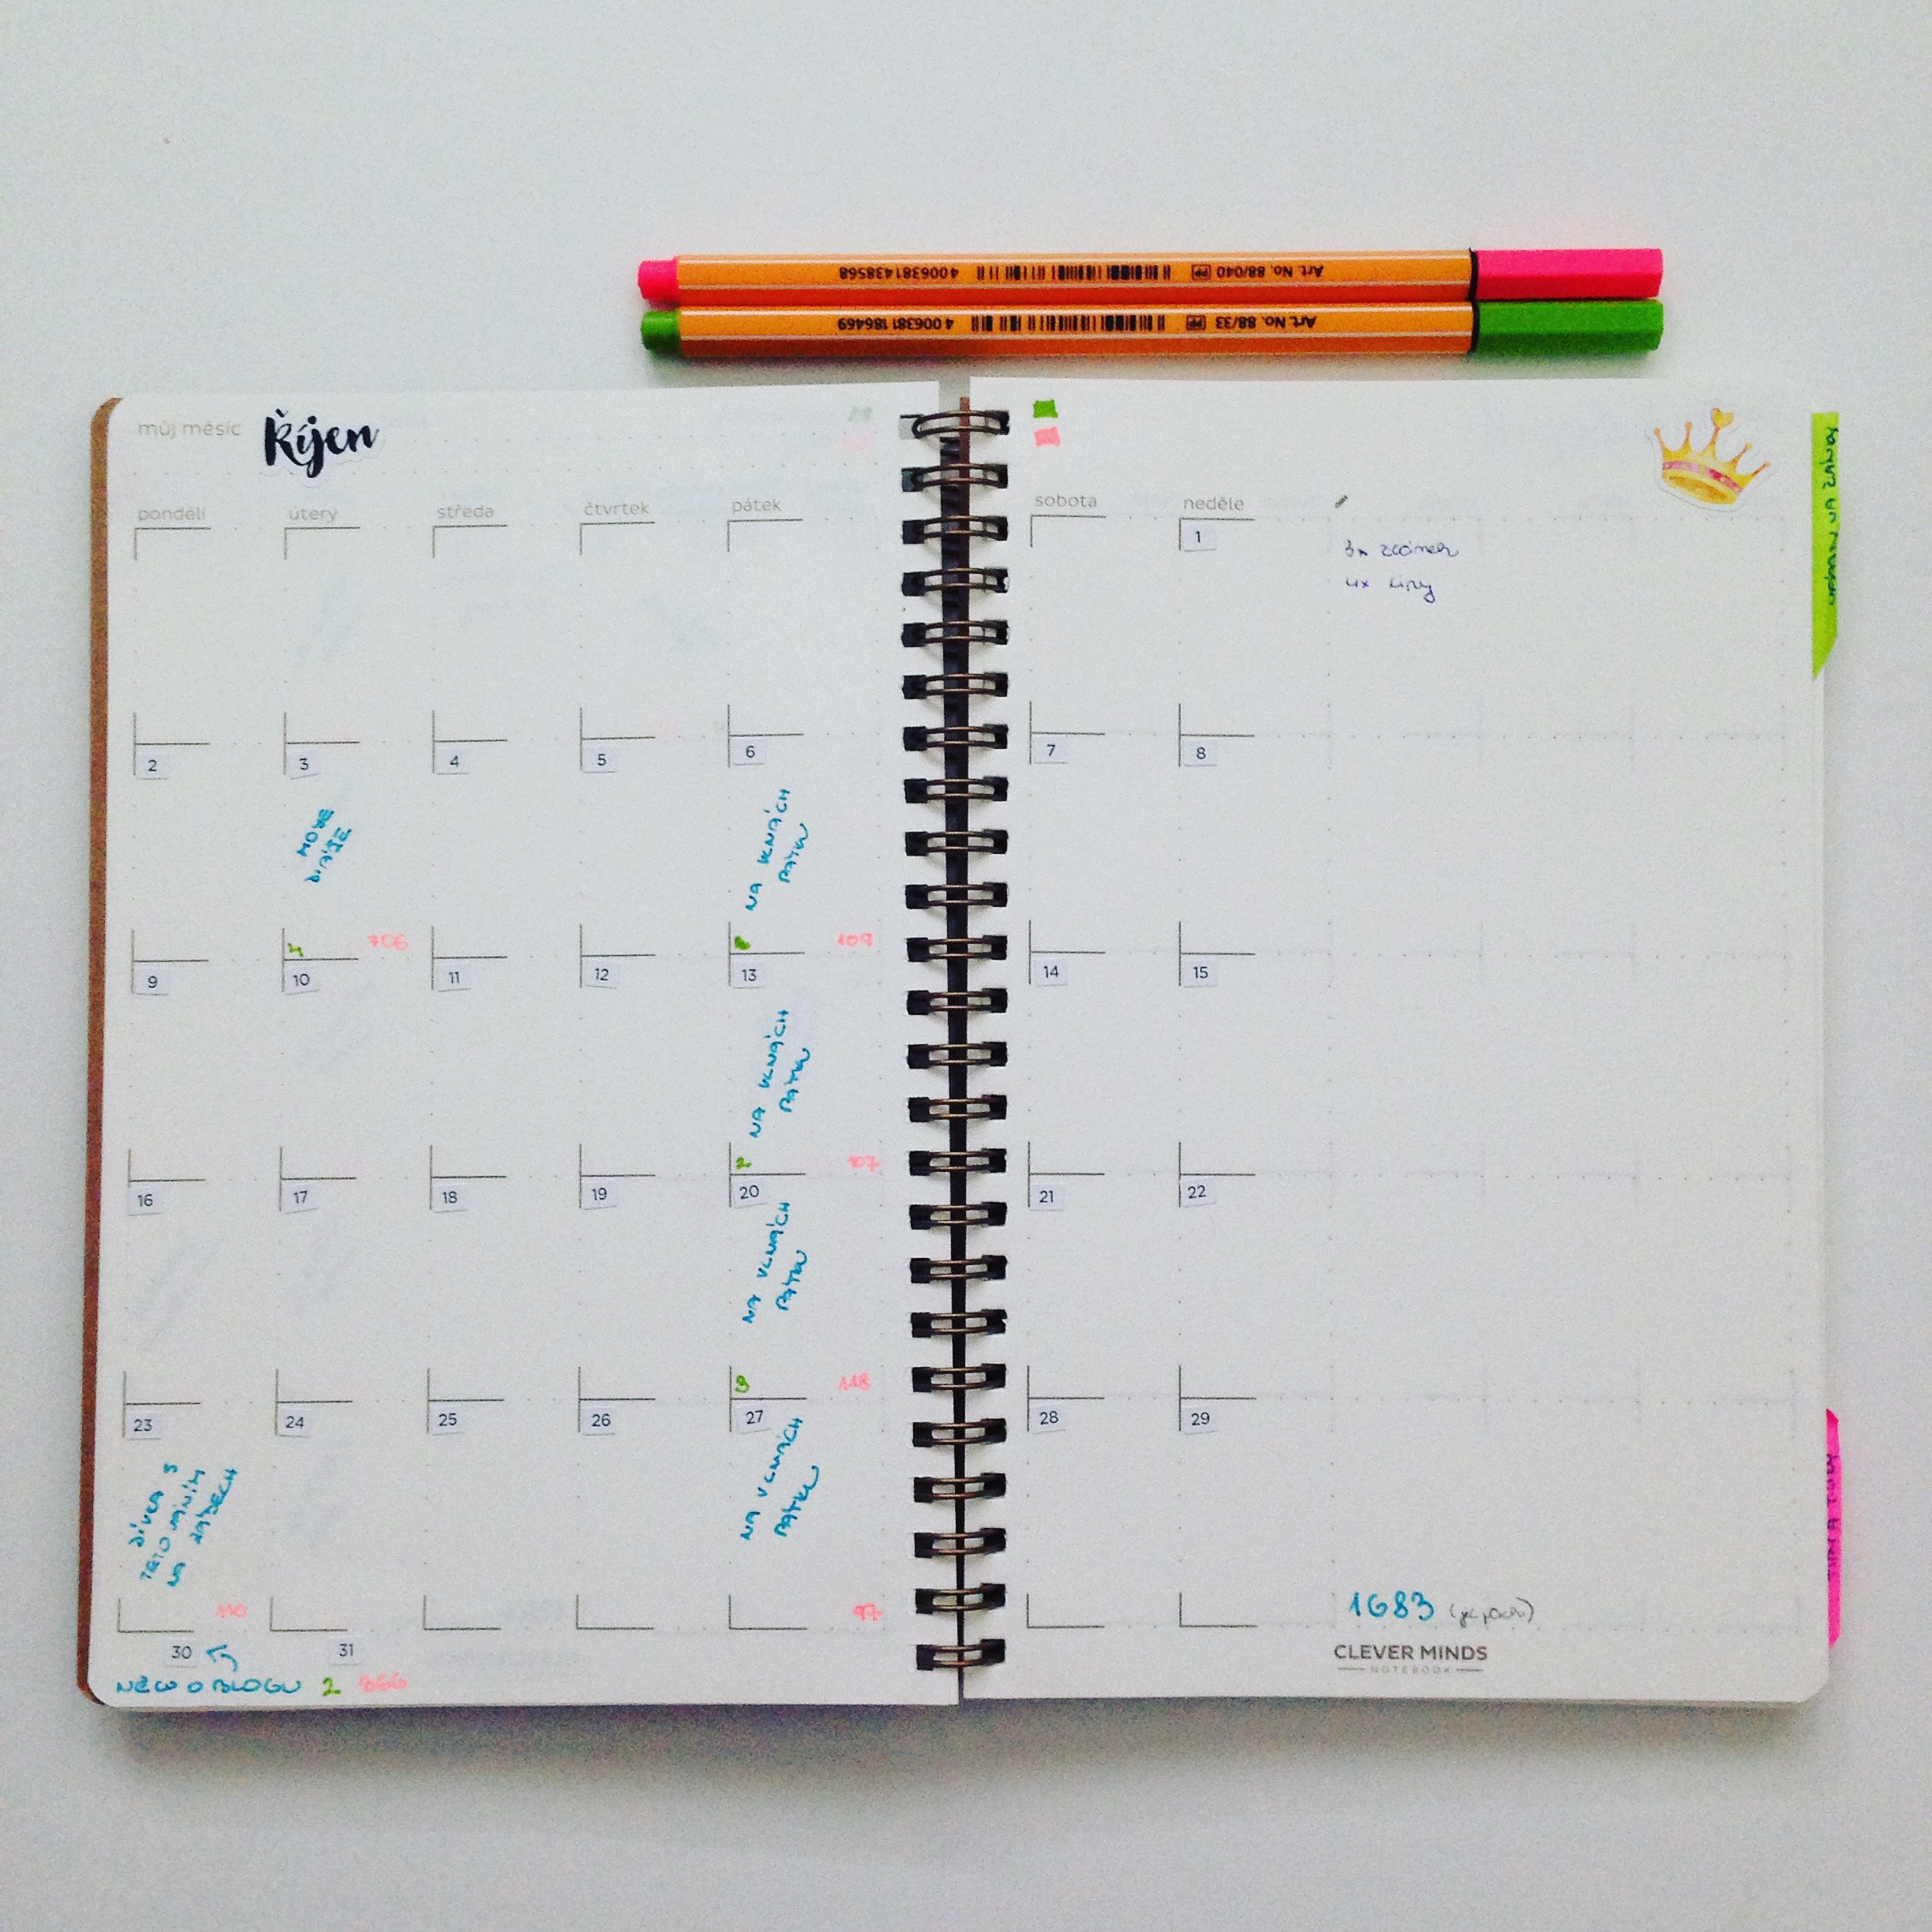 4 006381 438568 Art. No. 88/040 PP
4 006381 186469 Art. No. 88/33 PP
můj měsíc Říjen
pondělí úterý středa čtvrtek pátek sobota neděle
1
4x
2 3 4 5 6 7 8
NA VLNÁCH
PÁTKU
706 109
9 10 11 12 13 14 15
NA VLNÁCH
PÁTKU
2 107
16 17 18 19 20 21 22
NA VLNÁCH
PÁTKU
3 118
23 24 25 26 27 28 29
DÍVKA S
TETOVÁNÍM
NA ZÁDECH
NA VLNÁCH
PÁTKU
110 97
1683
30 31
NĚCO O BLOGU 2 866
CLEVER MINDS
NOTEBOOK